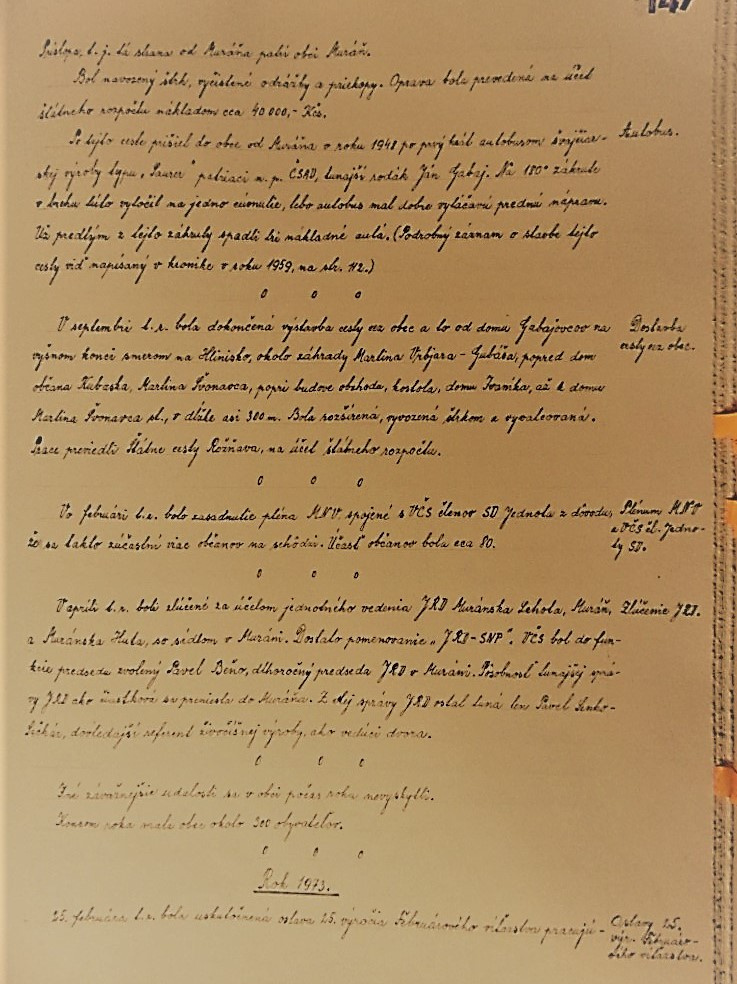 147
Príslopa, t. j. tá strana od Muráňa patrí obci Muráň.
Bol navozený štrk, vyčistené odrážky a priekopy. Oprava bola prevedená na účet
štátneho rozpočtu nákladom cca 40 000,- Kčs.
Po tejto ceste prišiel do obce od Muráňa v roku 1948 po prvý krát autobusom švajčiar-
Autobus.
skej výroby typu „Saurer" patriaci n. p. ČSAD, tunajší rodák Ján Gabaj. Na 180° zákrute
v brehu túto vytočil na jedno cúvnutie, lebo autobus mal dobre vytáčavú prednú nápravu.
Už predtým z tejto zákruty spadli tri nákladné autá. (Podrobný záznam o stavbe tejto
cesty viď napísaný v kronike v roku 1959, na str. 112.)
o o o
V septembri t. r. bola dokončená výstavba cesty cez obec a to od domu Gabajovcov na
Dostavba
vyšnom konci smerom na Hlinisko, okolo záhrady Martina Vrbjara - Gubáša, popred dom
cesty cez obec.
občana Kubaska, Martina Švonavca, popri budove obchodu, kostola, domu Ivanika, až k domu
Martina Švonavca st., v dĺžke asi 300 m. Bola rozšírená, vyvozená štrkom a vyvalcovaná.
Prace previedli Štátne cesty Rožňava, na účet štátneho rozpočtu.
o o o
Vo februári t. r. bolo zasadnutie pléna MNV, spojené s VČS členov SD Jednota z dôvodu,
Plénum MNV
že sa takto zúčastní viac občanov na schôdzi. Účasť občanov bola cca 80.
a VČS čl. Jedno-
ty SD.
o o o
V apríli t. r. boli zlúčené za účelom jednotného vedenia JRD Muránska Lehota, Muráň,
Zlúčenie JRD.
a Muránska Huta, so sídlom v Muráni. Dostalo pomenovanie „JRD-SNP". VČS bol do fun-
kcie predsedu zvolený Pavel Beňo, dlhoročný predseda JRD v Muráni. Pôsobnosť tunajšej sprá-
vy JRD ako čiastková sa preniesla do Muráňa. Z tejto správy JRD ostal tuná len Pavel Senko-
doteđajší referent živočíšnej výroby, ako vedúci dvora.
o o o
Iné závažnejšie udalosti sa v obci počas roka nevyskytli.
Koncom roka mala obec okolo 300 obyvateľov.
o o o
Rok 1973.
25. februára t. r. bola uskutočnená oslava 25. výročia Februárového víťazstva pracujú-
Oslavy 25.
výr. Februáro-
vého víťazstva.